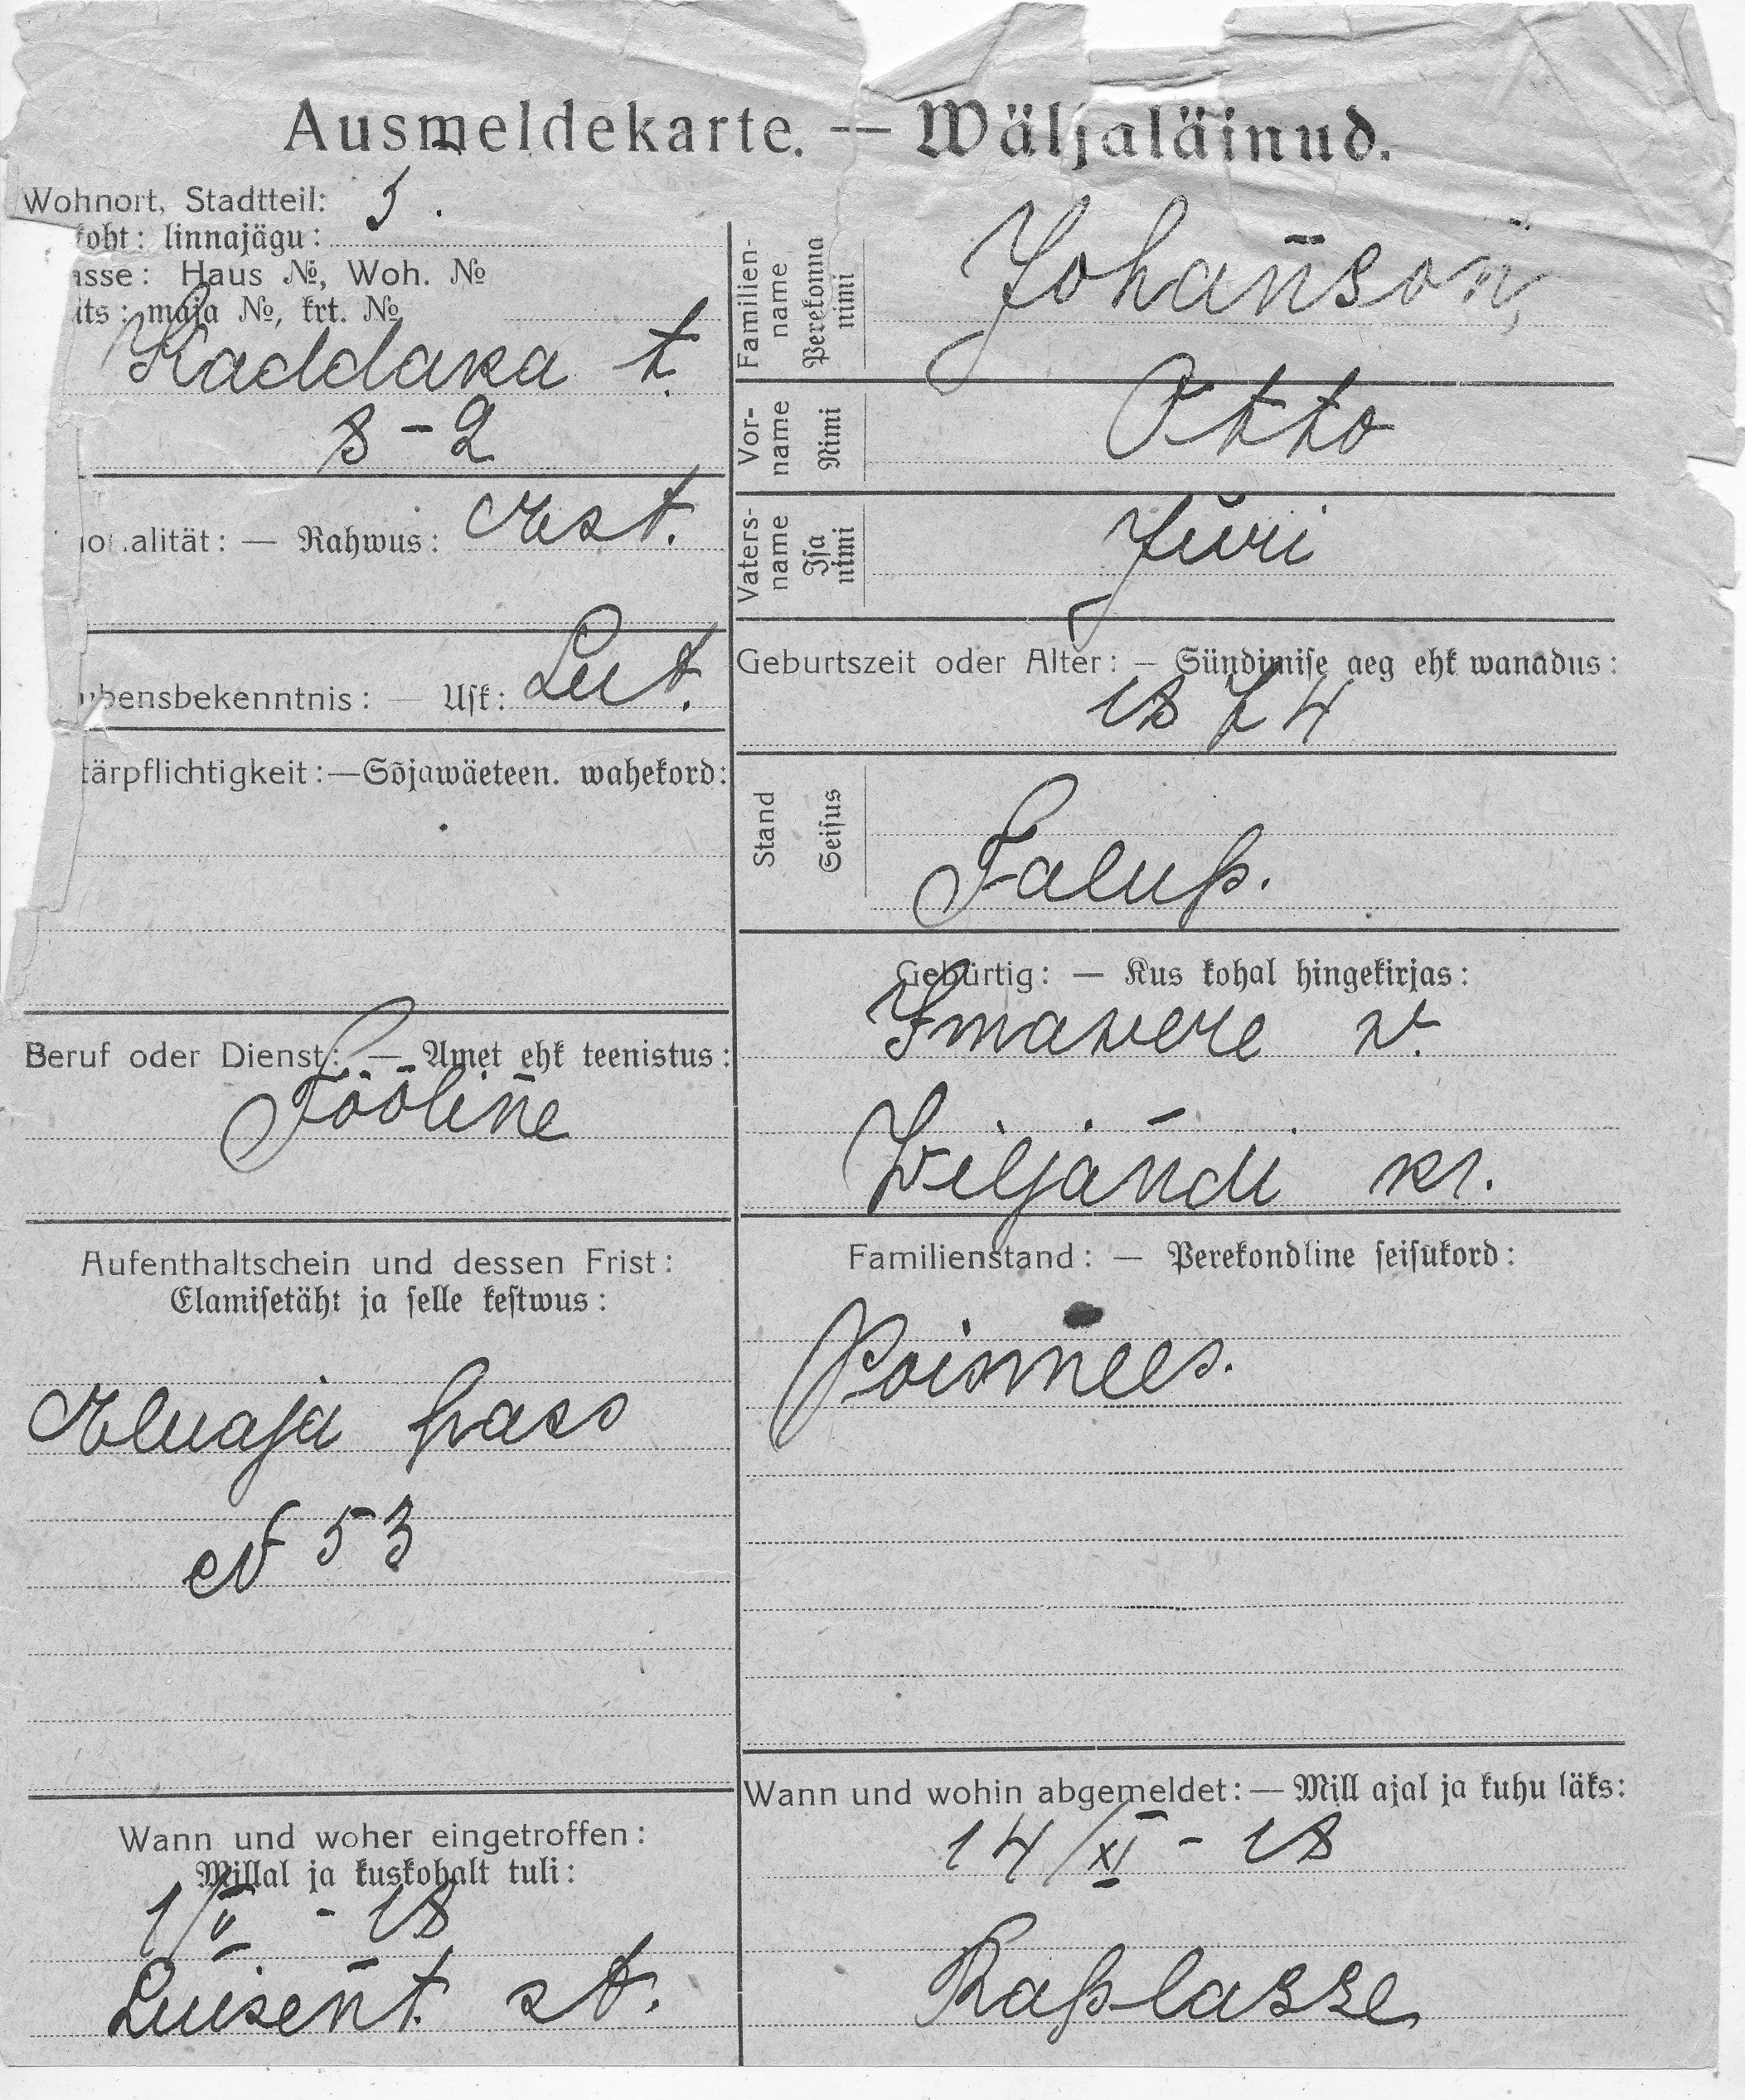 Ausmeldekarte. — Wäljaläinud.
Wohnort, Stadtteil: 5.
koht: linnajägu:
asse: Haus №, Woh. №
its: maja №, krt. №
Kaddaka t.
8-2
alität: — Rahwus: Eest.
ubensbekenntnis: — Usk: Lut.
tärpflichtigkeit:—Sõjawäeteen. wahekord:
Beruf oder Dienst: — Amet ehk teenistus:
Tööline
Aufenthaltschein und dessen Frist:
Elamisetäht ja selle kestwus:
Eluaja pass
№ 53
Wann und woher eingetroffen:
Millal ja kuskohalt tuli:
1/V - 18
Luisent. st.
Familien-
name
Perekonna
nimi
Johanson,
Vor-
name
Nimi
Otto
Vaters-
name
Isa
nimi
Jüri
Geburtszeit oder Alter: — Sündimise aeg ehk wanadus:
1874
Stand
Seisus
Talup.
Gebürtig: — Kus kohal hingekirjas:
Imawere v.
Wiljandi kr.
Familienstand: — Perekondline seisukord:
Poismees.
Wann und wohin abgemeldet:— Mill ajal ja kuhu läks:
14/XI - 18
Raplasse